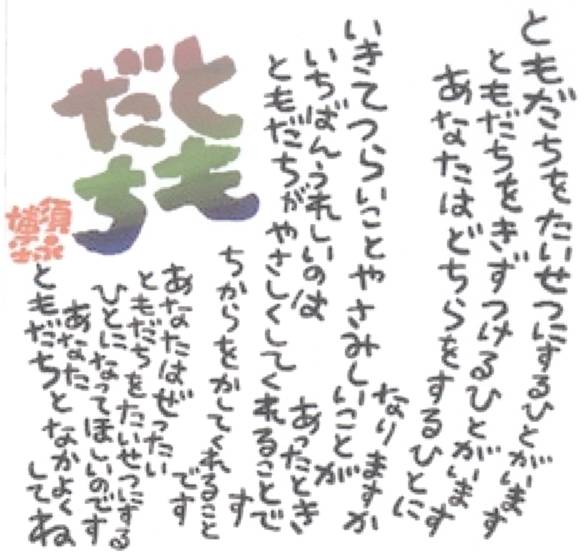 ともだちをたいせつにするひとがいます
ともだちをきずつけるひとがいます
あなたはどちらをするひとに
なりますか
いきてつらいことやさみしいことが
あったとき
いちばんうれしいのは
ともだちがやさしくしてくれることで
す
ちからをかしてくれること
です
あなたはぜったい
ともだちをたいせつにする
ひとになってほしいのです
あなた
ともだちとなかよく
してね
とも
だち
須永
博士